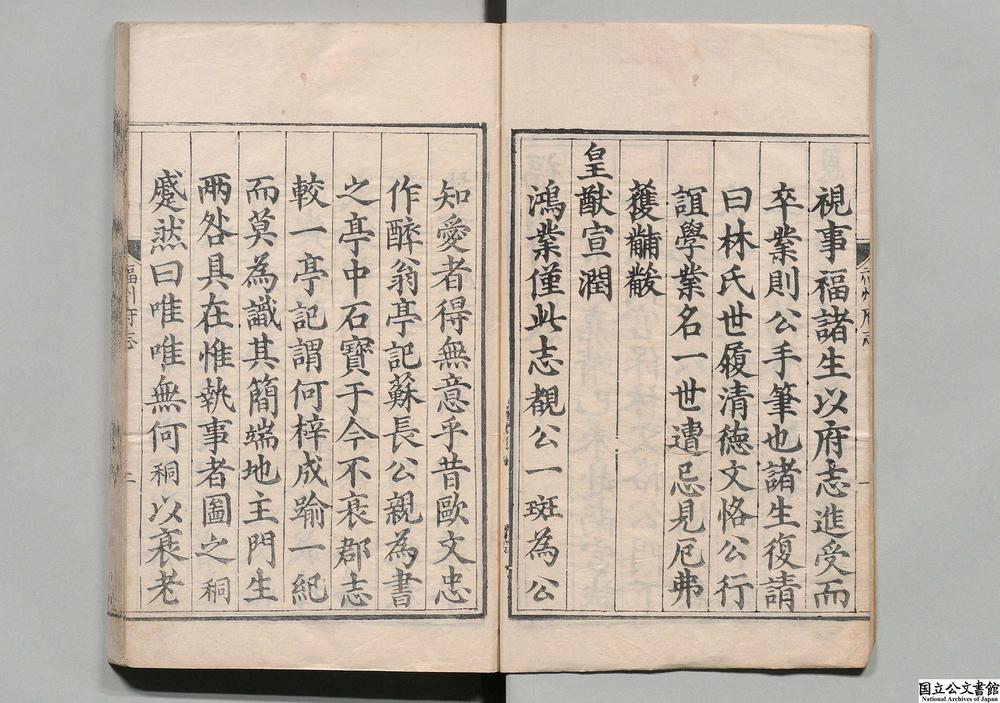 視事福諸生以府志進受而
卒業則公手筆也諸生復請
曰林氏世履清德文恪公行
誼學業名一世遭忌見厄弗
獲黼黻
皇猷宣潤
鴻業僅此志覩公一斑為公
知愛者得無意乎昔歐文忠
作醉翁亭記蘇長公親為書
之亭中石寶于今不衰郡志
較一亭記謂何梓成踰一紀
而莫為識其簡端地主門生
兩咎具在惟執事者圖之秱
蹙然曰唯唯無何秱以衰老
福州府志
二
国立公文書館
National Archives of Japan